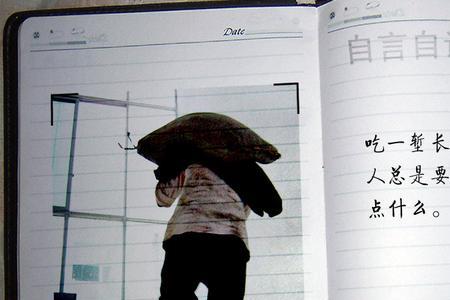 Date
自言自
吃一堑长
人总是要
点什么。